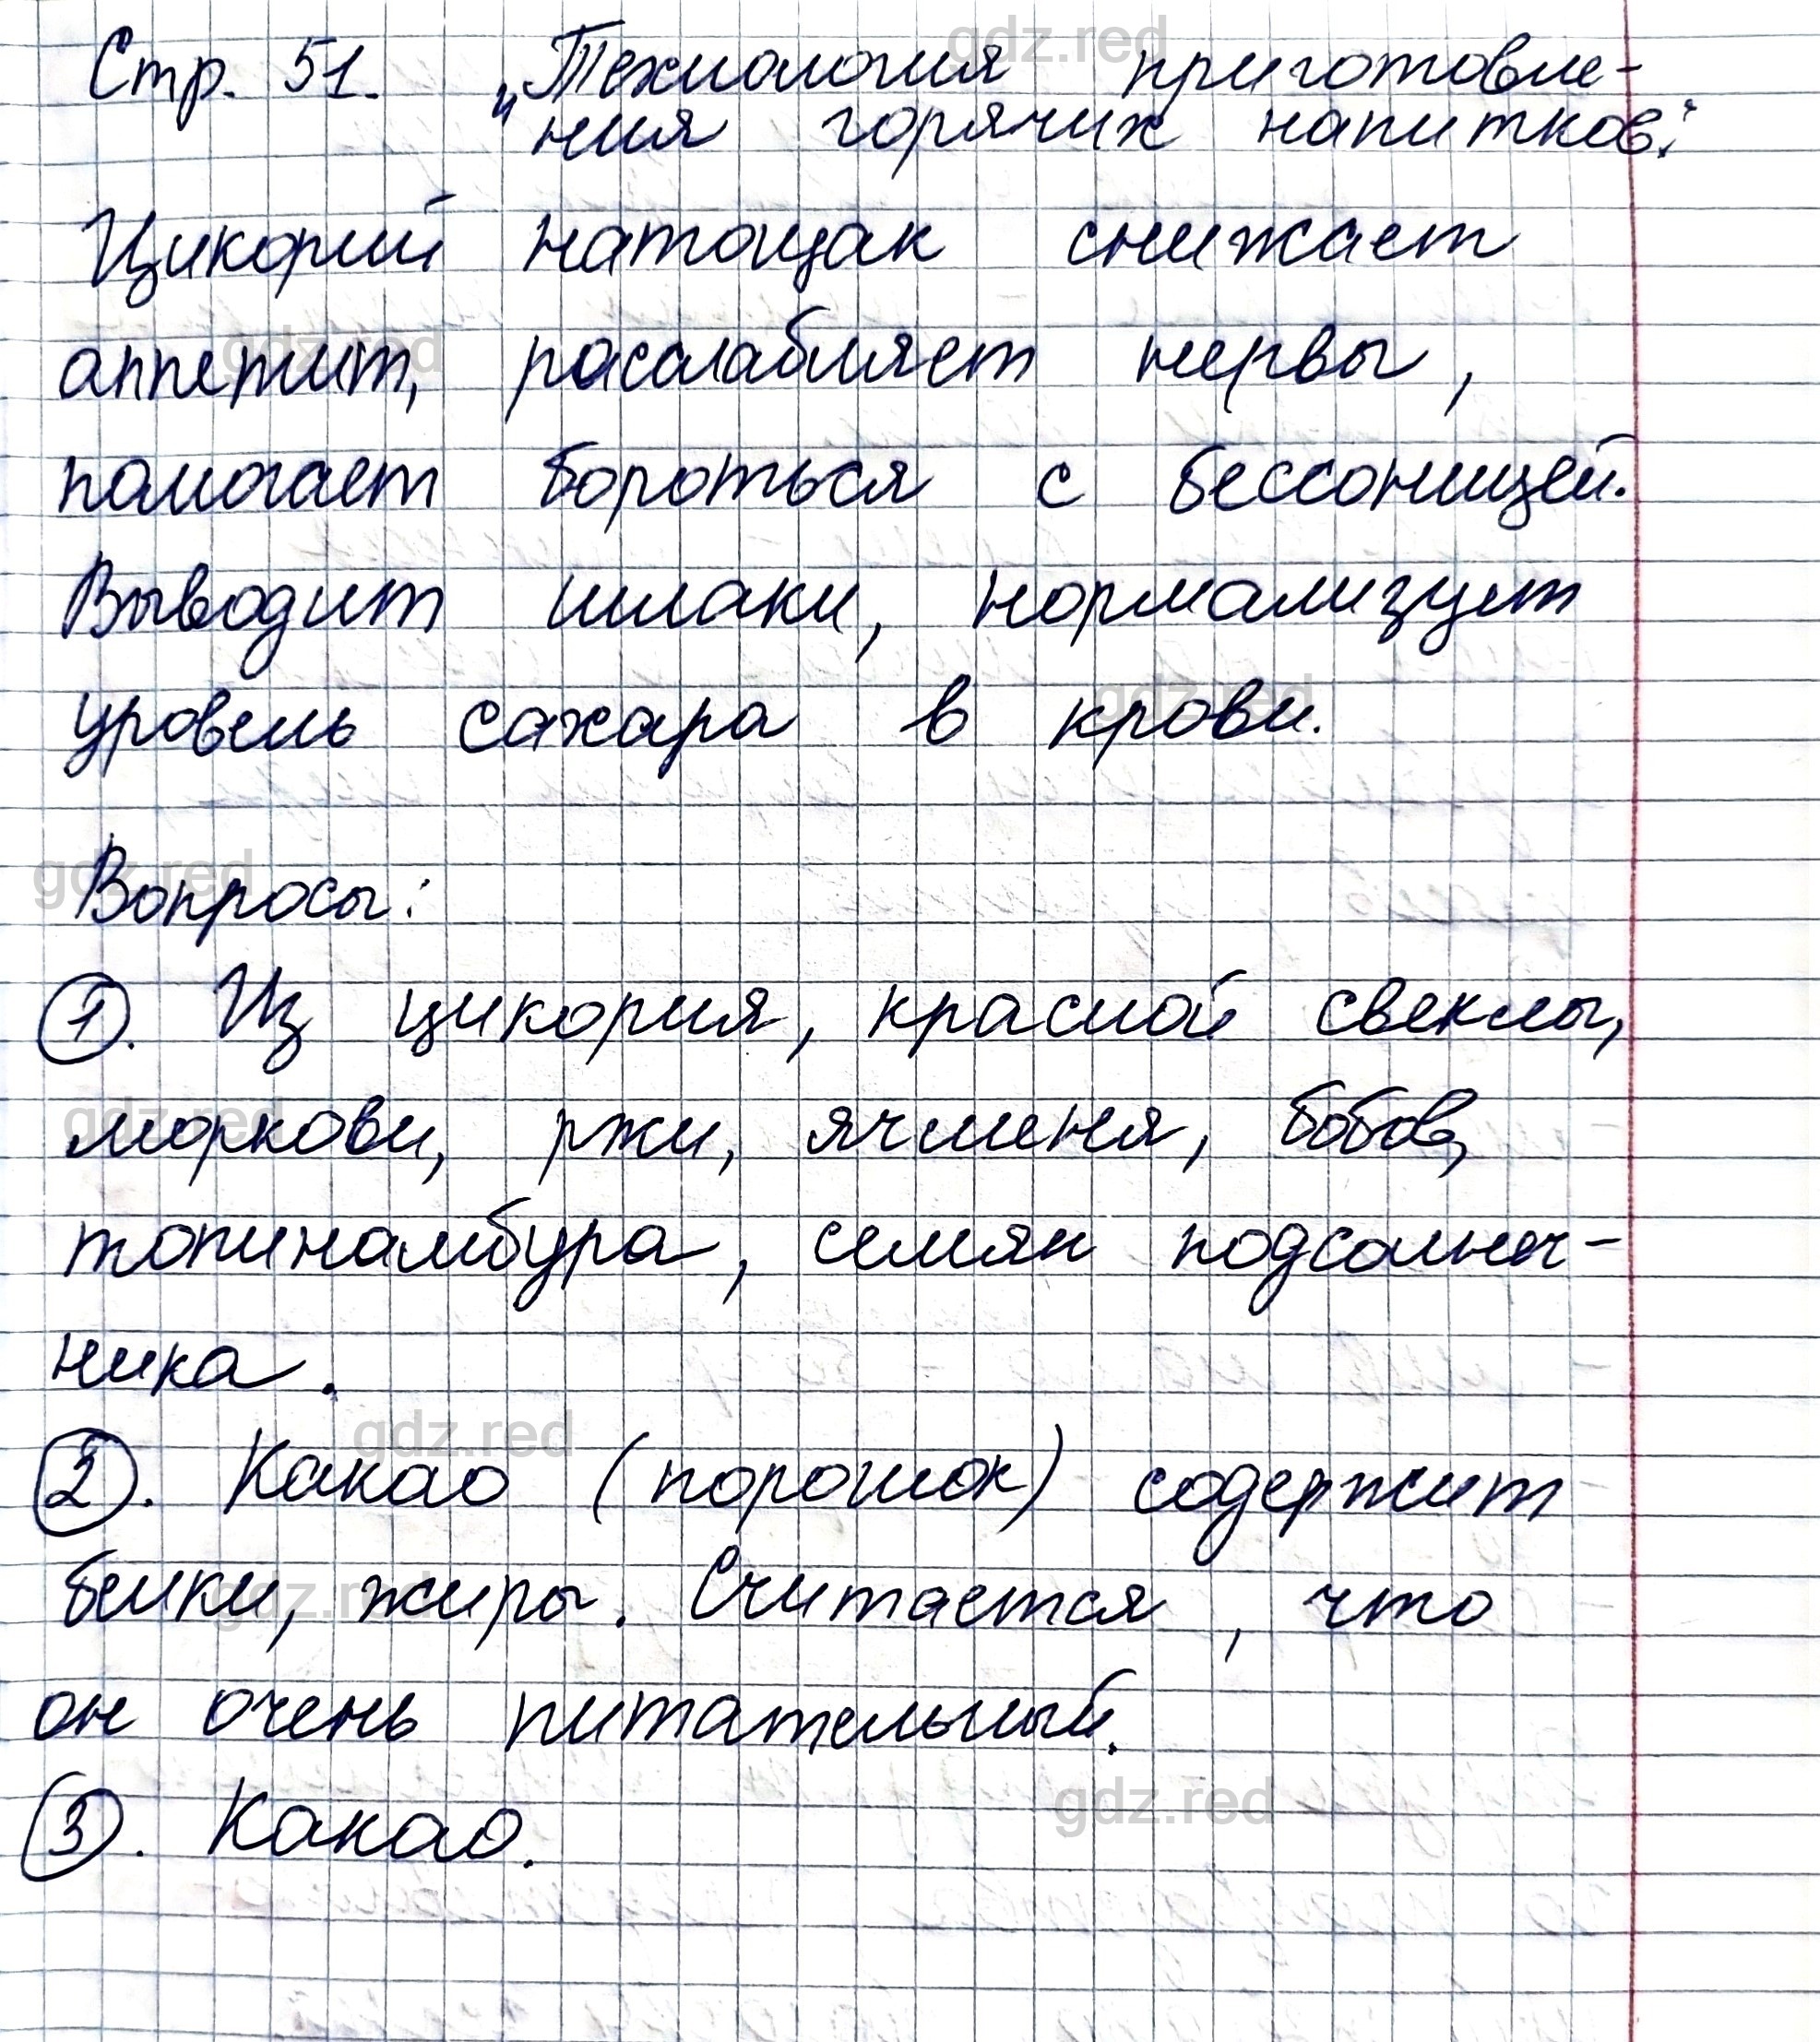 Стр. 51. „Технология приготовле-
ния горячих напитков."
Цикорий натощак снижает
аппетит, расслабляет нервы,
помогает бороться с бессоницей.
Выводит шлаки, нормализует
уровень сахара в крови.
Вопросы:
1. Из цикория, красной свеклы,
моркови, ржи, ячменя, бобов,
топинамбура, семян подсолнеч-
ника.
2. Какао (порошок) содержит
белки, жиры. Считается, что
он очень питательный.
3. Какао.
gdz.red
gdz.red
gdz.red
gdz.red
gdz.red
gdz.red
gdz.red
gdz.red